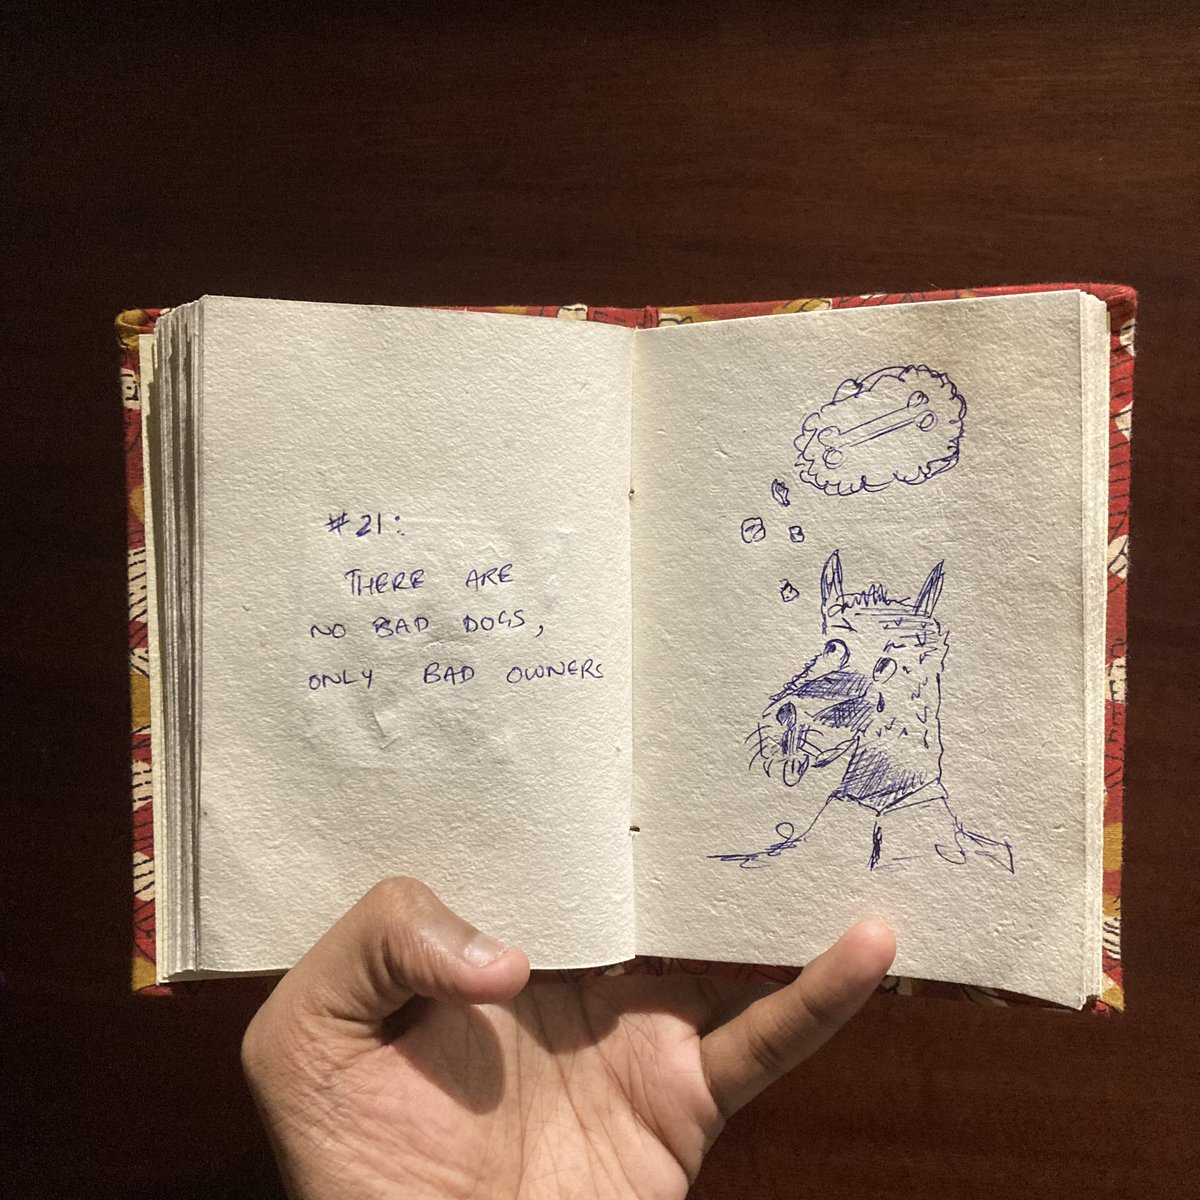 #21:
THERE ARE
NO BAD DOGS,
ONLY BAD OWNERS